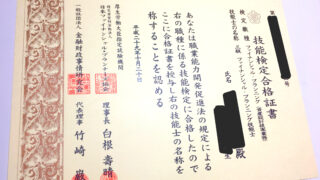 第　　　　号
技能検定合格証書
検定職種　ファイナンシャル・プランニング
技能士の名称
ファイナンシャル・プランニング技能士
氏名　　　　殿
あなたは職業能力開発促進法の規定による
右の職種に係る技能検定に合格したので
ここに合格証書を授与し右の技能士の名称を
称することを認める
平成二十九年十月二十日
厚生労働大臣指定試験機関
日本ファイナンシャル・プランナーズ協会
理事長　白根壽晴
一般社団法人　金融財政事情研究会
代表理事　竹崎巌